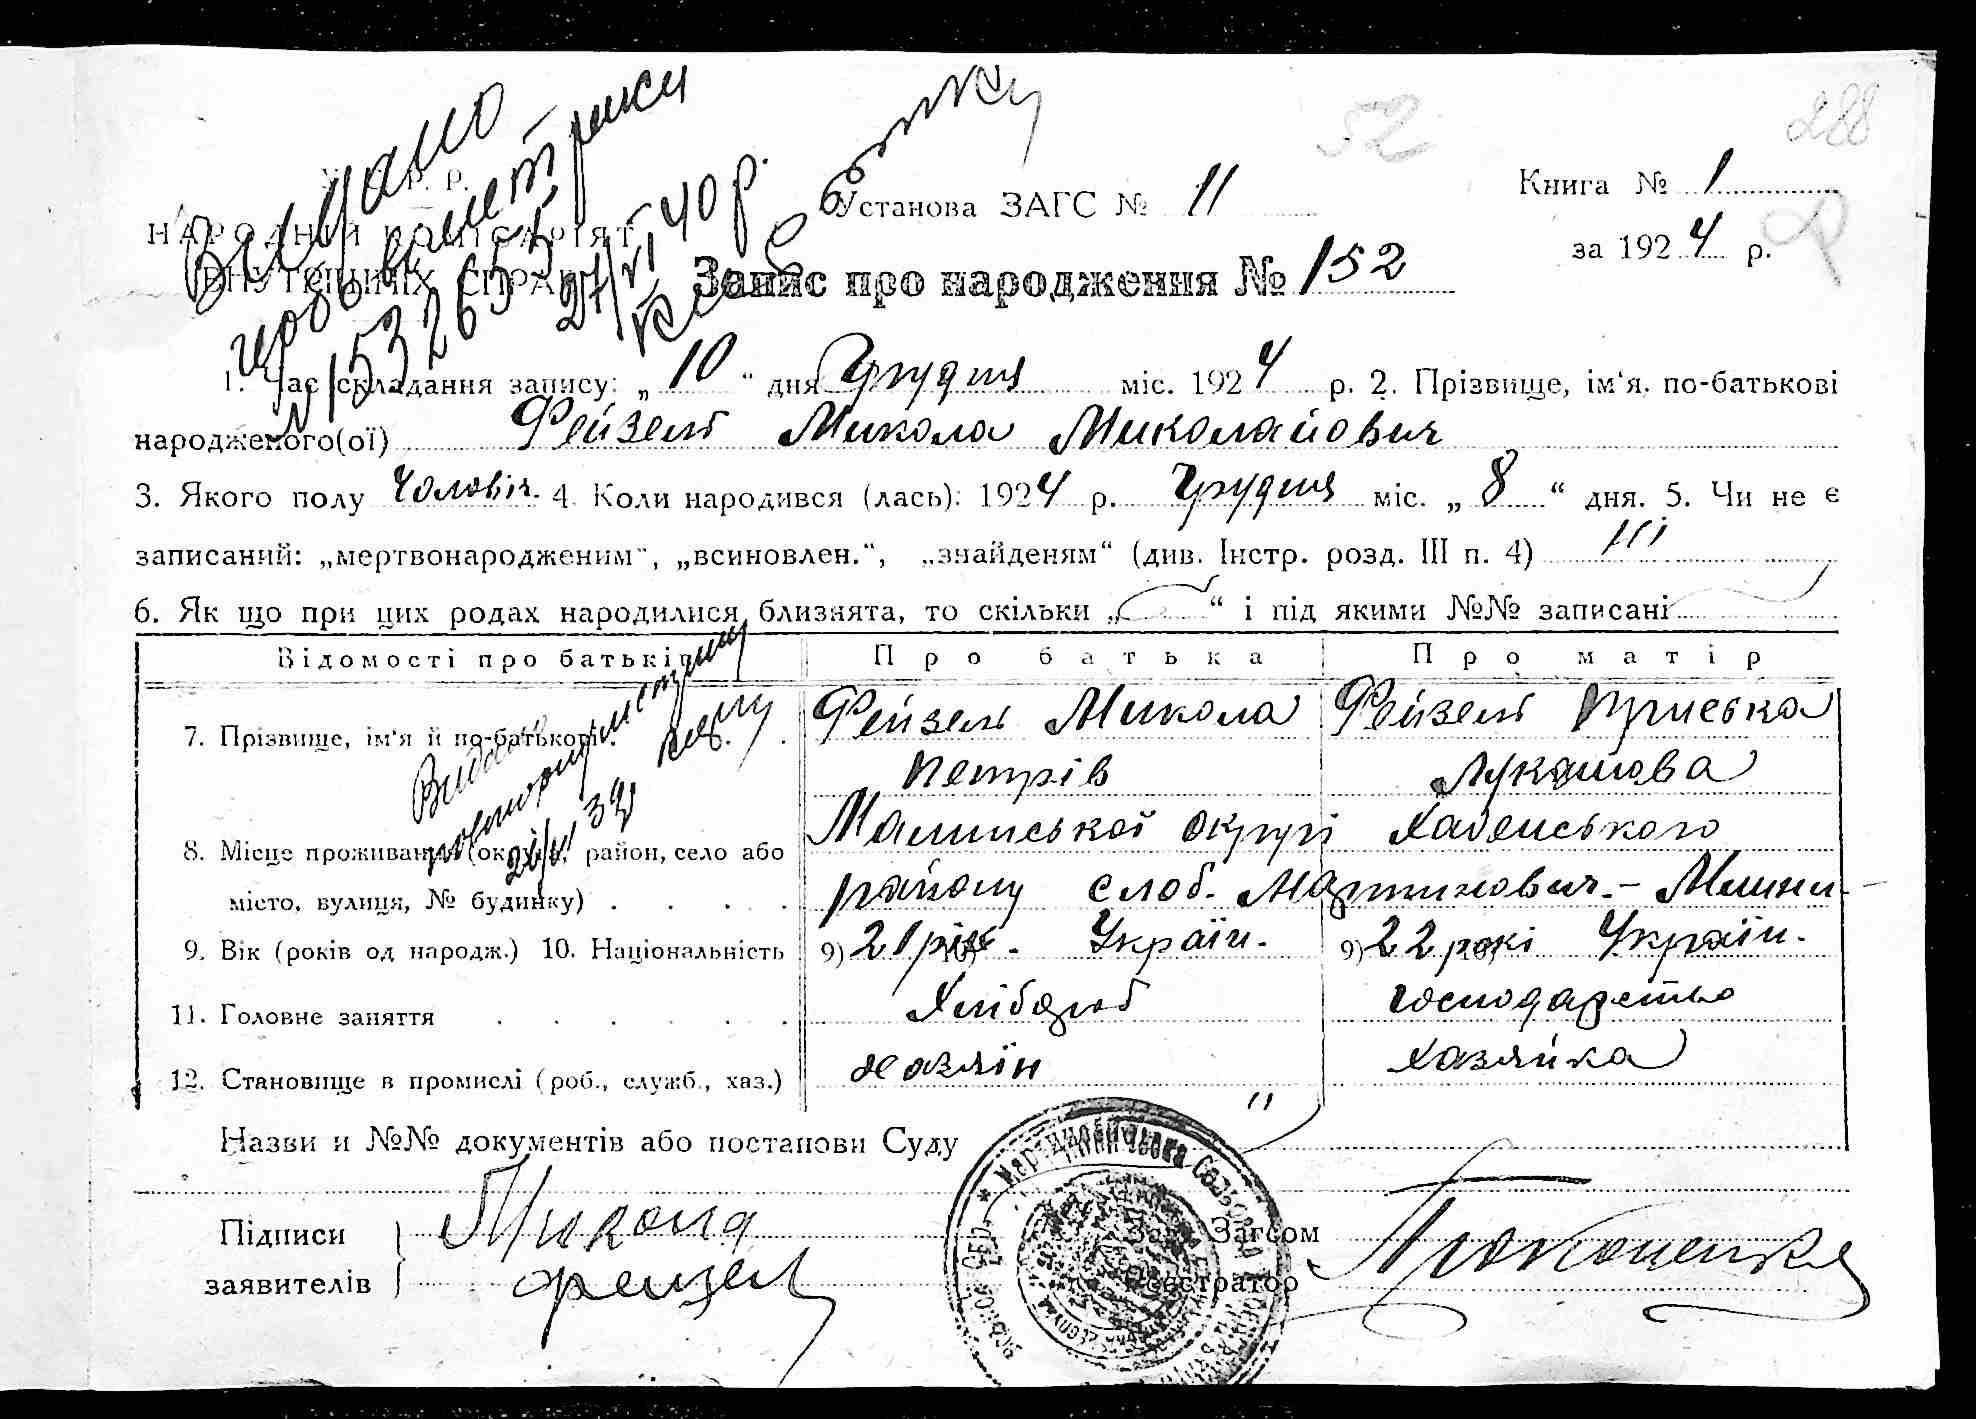 52
288
У. С. Р. Р.
НАРОДНІЙ КОМІСАРІЯТ
ВНУТРІШНІХ СПРАВ
Видано
метрики
№ 153265
27/VI 40 р.
Установа ЗАГС № 11
Книга № 1
за 1924 р.
Запис про народження № 152
1. Час складання запису: „10“ дня Грудня міс. 1924 р. 2. Прізвище, ім‘я, по-батькові
народженого(ої) Фейзель Микола Миколайович
3. Якого полу Чоловіч. 4. Коли народився (лась): 1924 р. Грудня міс. „8“ дня. 5. Чи не є
записаний: „мертвонародженим“, „всиновлен.“, „знайденям“ (див. Інстр. розд. III п. 4) Ні
6. Як що при цих родах народилися близнята, то скільки „ “ і під якими №№ записані
Відомості про батьків
Про батька
Про матір
7. Прізвище, ім‘я й по-батькові
Фейзель Микола
Петрів
Фейзель Пріська
Лукашова
Видано
повторну
8. Місце проживання (округа, район, село або
місто, вулиця, № будинку)
Малинської округи Хабенського
району слоб. Мартинович.-
9. Вік (років од народж.) 10. Національність
9) 21 рік. Україн.
9) 22 рокі Україн.
11. Головне заняття
Хлібороб
господарство
12. Становище в промислі (роб., служб., хаз.)
хазяїн
хазяйка
Назви и №№ документів або постанови Суду
Підписи
заявителів
Микола
Фейзель
Зав. Загсом
Реєстратор